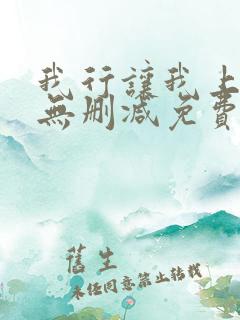 我行讓我上
無刪減免費
舊生
未經同意禁止轉載